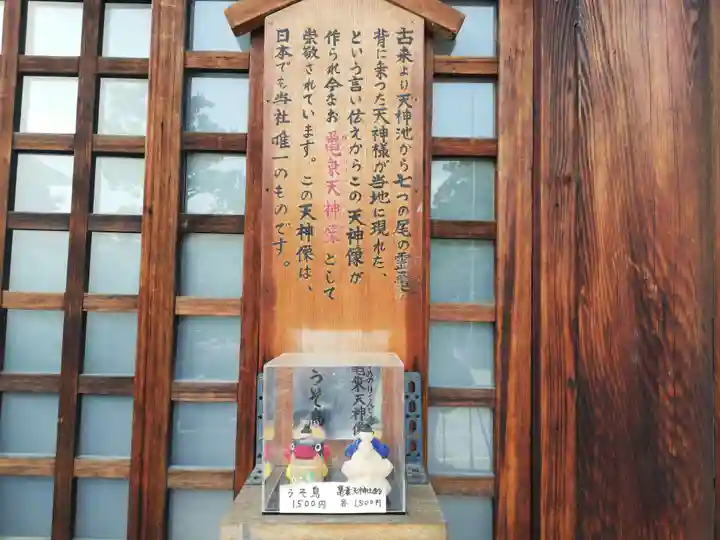 古来より天神池から七つの尾の霊亀の
背に乗った天神様が当地に現れた、
という言い伝えからこの天神像が
作られ今なお亀乗天神像として
崇敬されています。この天神像は、
日本でも当社唯一のものです。
うそ
亀乗天神
うそ鳥
1500円
亀乗天神
各1500円